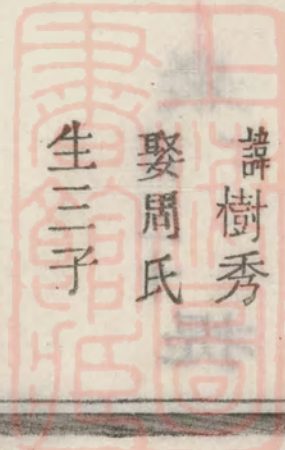 諱樹秀
娶周氏
生三子